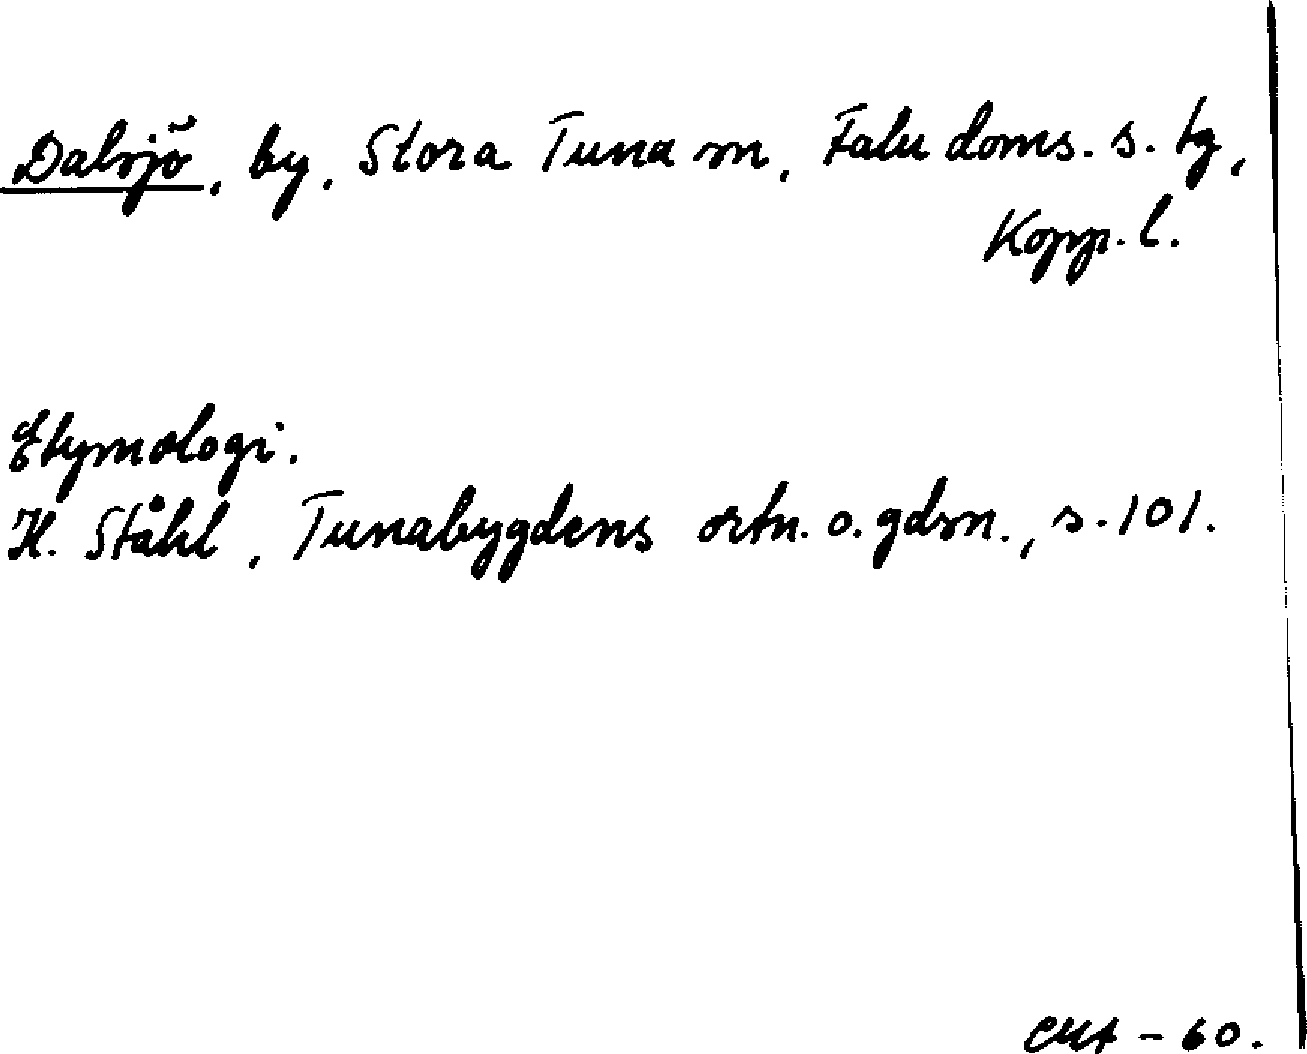 Dalsjö, by, Stora Tuna sn, Falu doms. s. tg,
Kopp. l.
Etymologi.
H. Ståhl, Tunabygdens ortn. o. gdsn., s. 101.
- 60.